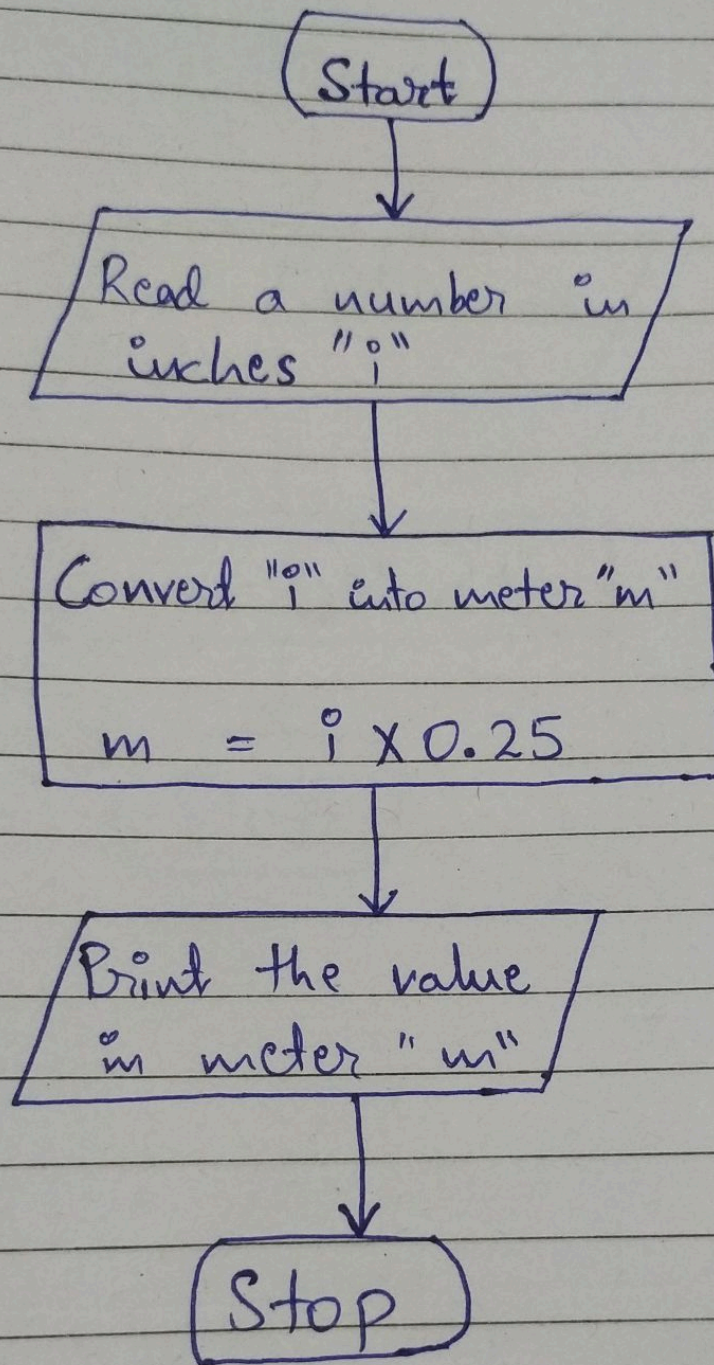 Start
Read a number in
inches "i"
Convert "i" into meter "m"
m = i X 0.25
Print the value
in meter "m"
Stop